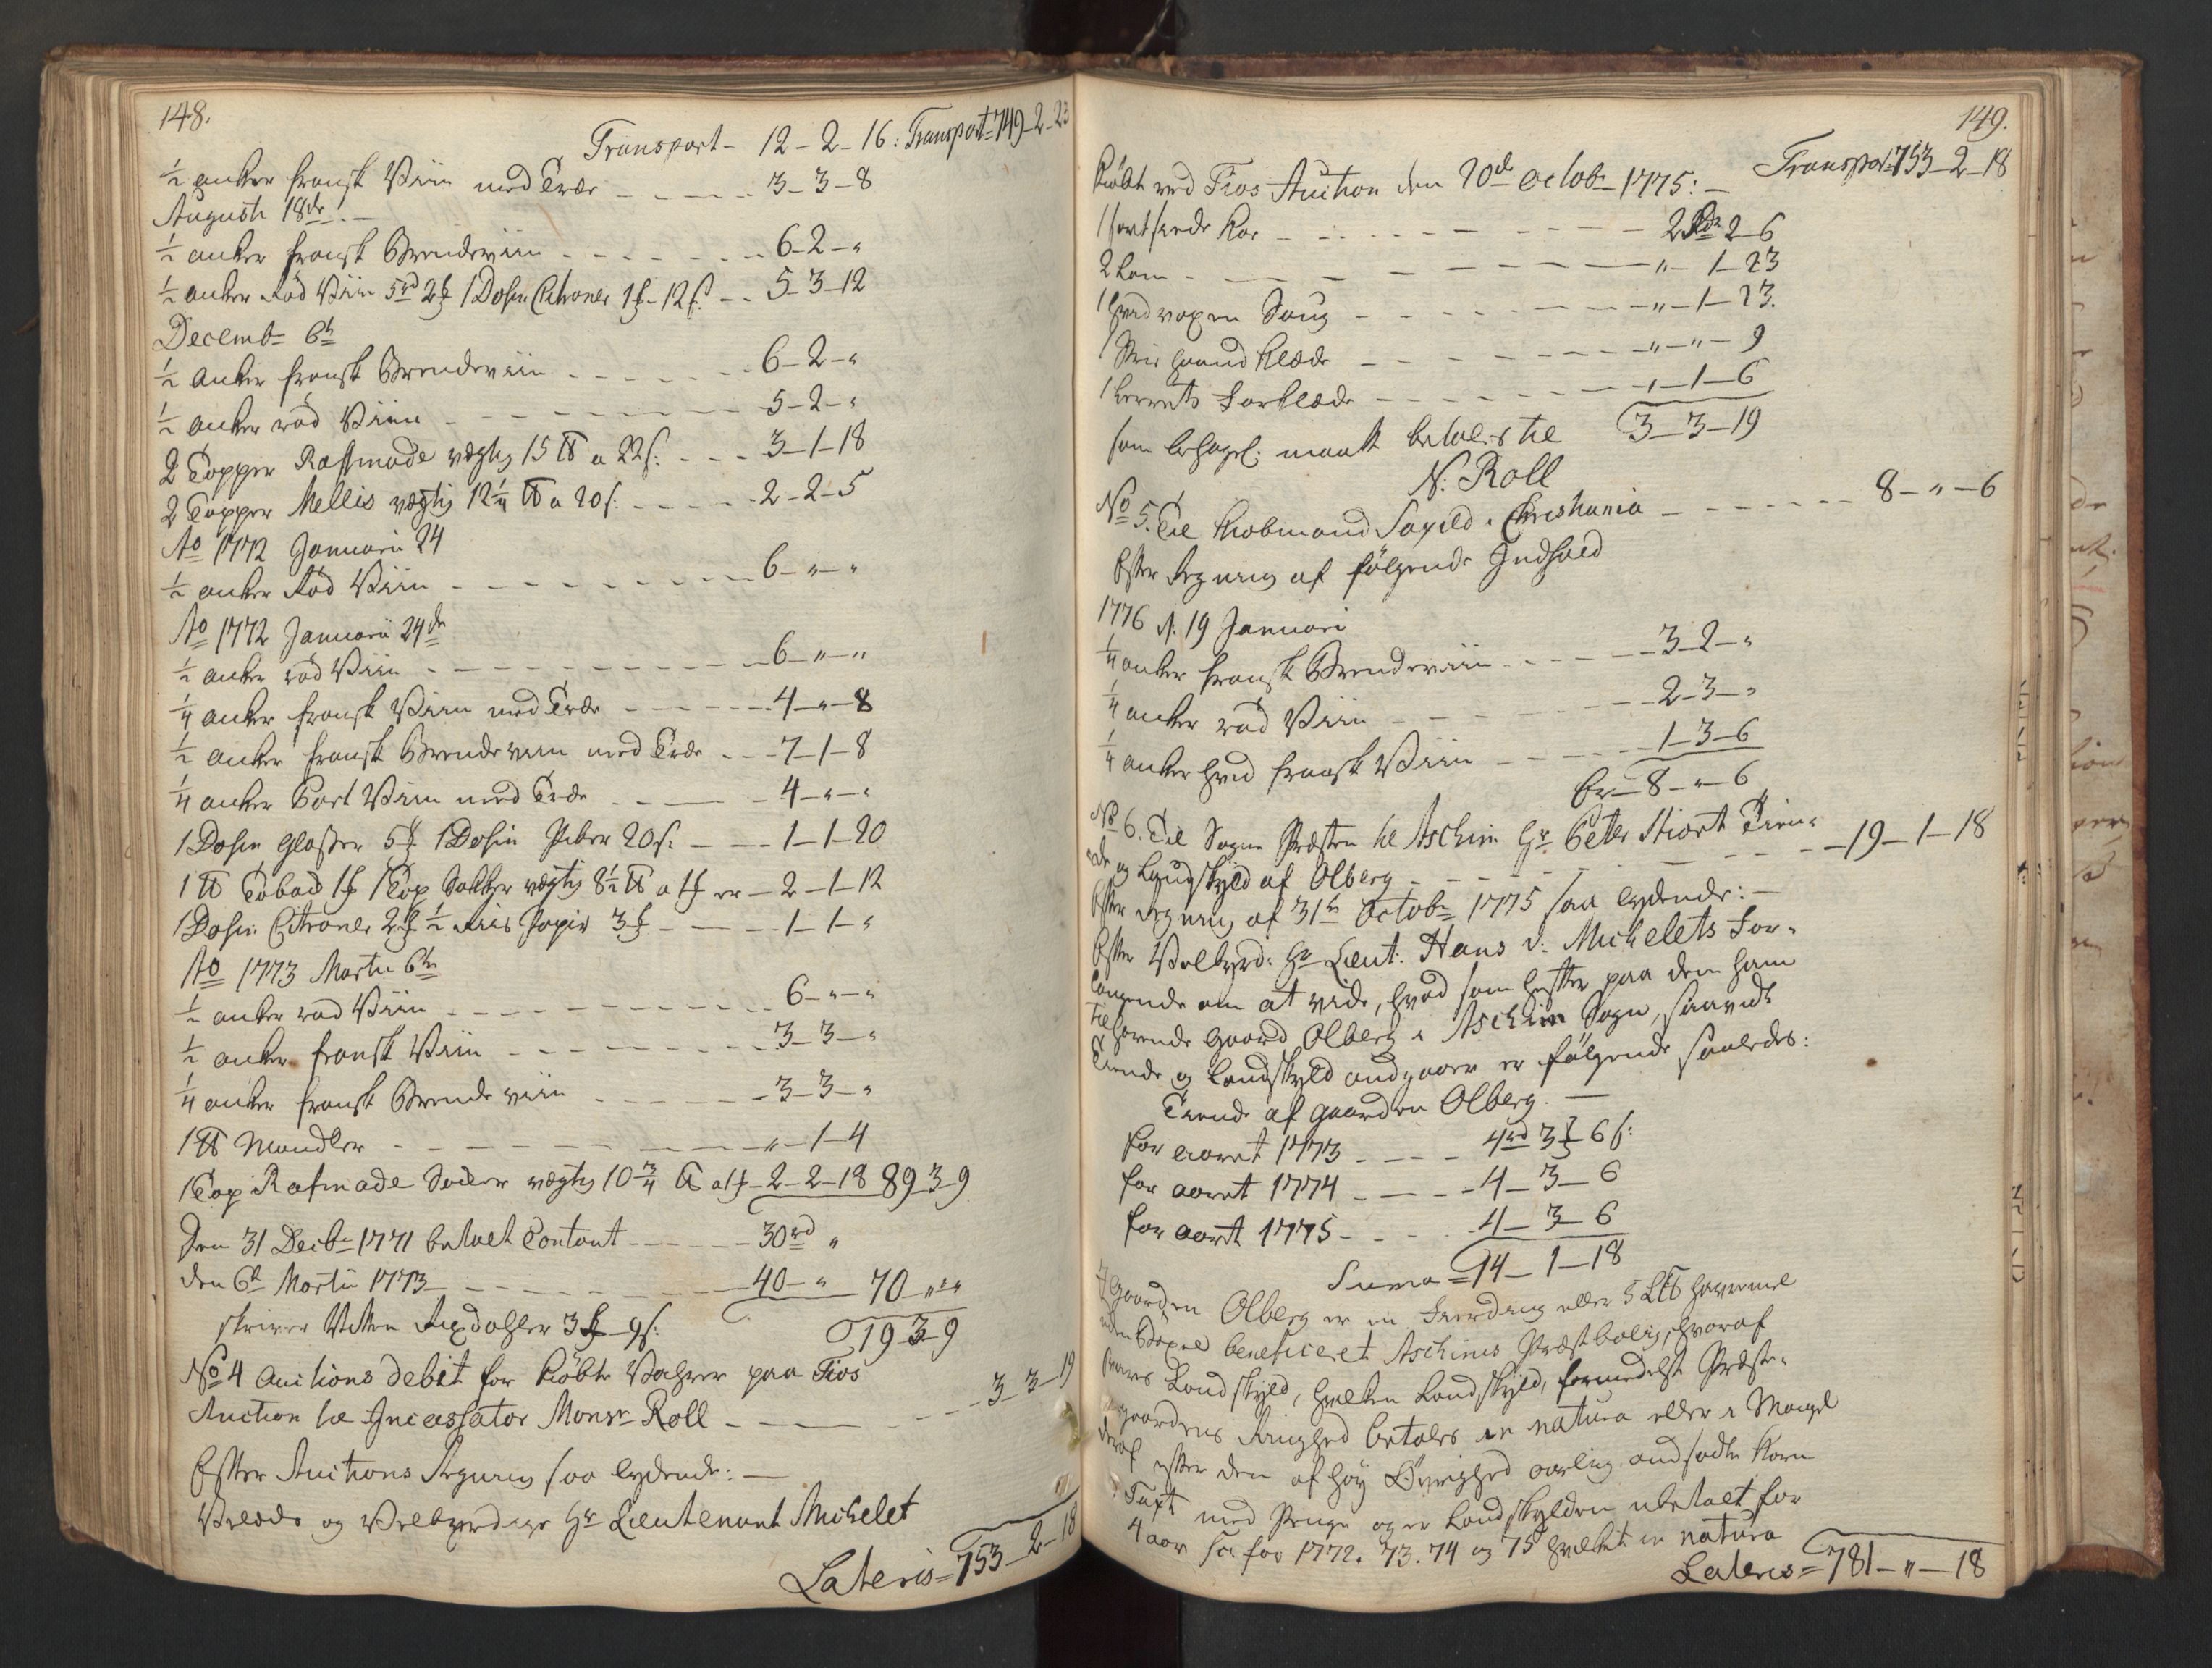 148.
Transport - 12 - 2 - 16: Transport = 749 - 2 - 23
½ anker fransk Viin med Træe - - - 3 - 3 - 8
Augusti 18de: -
½ anker fransk Brendeviin - - - 6 - 2 - "
½ anker Rød Viin 5rd 2 ₰ 1 Dosin Citroner 1 ₰ - 12 s. - - 5 - 3 - 12
Decemb= 6t
½ anker fransk Brendeviin - - - 6 - 2 - "
½ anker rød Viin - - - 5 - 2 - "
2 Topper Raffinade vægtig 15 ℔ a 22 s. - - - 3 - 1 - 18
2 Topper Mellis vægtig 12¼ ℔ a 20 s. - - - 2 - 2 - 5
Ao 1772 Januarii 24
½ anker Rød Viin - - - 6 - " - "
Ao 1772 Januarii 24de
½ anker rød Viin - - - 6 - " - "
¼ anker fransk Viin med Træe - - - 4 - " - 8
½ anker fransk Brendeviin med Træe - - - 7 - 1 - 8
¼ anker Port Viin med Træe - - - 4 - " - "
1 Dosin glasser 5 ₰ 1 Dosin Piber 20 s. - - - 1 - 1 - 20
1 ℔ Tobak 1 ₰ 1 Top Sukker vægtig 8½ ℔ a 1 ₰ er - 2 - 1 - 12
1 Dosin Citroner 2 ₰ ½ Riis Papir 3 ₰ - - - 1 - 1 - "
Ao 1773 Martii 6te
½ anker rød Viin - - - 6 - " - "
½ anker fransk Viin - - - 3 - 3 - "
¼ anker fransk Brendeviin - - - 3 - 3 - "
1 ℔ Mandler - - - " - 1 - 4
1 Top Rafinade Sucker vægtig 10¾ ℔ a 1 ₰ - 2 - 2 - 18 89 - 3 - 9
Den 31 Decbr 1771 betalt Contant - - - 30rd "
den 6te Martii 1773 - - - 40 - " 70 - " - "
skriver Nitten Rixdahler 3 ₰ - 9 s. 19 - 3 - 9
No 4 Auctions debit for kiøbte Vahrer paa Fios
Auction til Incassator Monsr Roll - - - 3 - 3 - 19
Efter Auctions Regning saa lydende: -
Velædle og Velbyrdige Hr Lieutenant Michelet
Lateris = 753 - 2 - 18
149.
Transport = 753 - 2 - 18
Kiøbt ved Fios Auction den 20de Octob= 1775: -
1 sort siede Koe - - - 2 Rdr 2 - 6
2 Lam - - - " - 1 - 23
1 hvid voxen Saug - - - " - 1 - 23.
1 Stri haand Klæde - - - " - " - 9
1 Lerrets Forklæde - - - " - 1 - 6
som behagel. maatte betales til 3 - 3 - 19
N: Roll
No 5. Til Kiøbmand Sageld i Christiania - - - 8 - " - 6
Efter Regning af følgende Indhold
1776 d. 19 Januari
¼ anker fransk Brendeviin - - - 3 - 2 - "
¼ anker rød Viin - - - 2 - 3 - "
¼ anker hvid fransk Viin - - - 1 - 3 - 6
er - 8 - " - 6
No 6. Til Sogne Præsten til Aschim Hr Peter Stiort Tien-
de og Landskyld af Olberg - - - 19 - 1 - 18
Efter Regning af 31te Octobr 1775 saa lydende: -
Efter Velbyrd: Hr Lieut: Hans v: Michelets For-
langende om at vide, hvad som hefter paa den ham
tilhørende gaard Olberg i Aschim Sogn, saavidt
Tiende og Landskyld andgaaer er følgende saaledes:
Tiende af gaarden Olberg. -
for aaret 1773 - - - 4rd 3 ₰ 6 s:
for aaret 1774 - - - 4 - 3 - 6
for aaret 1775 - - - 4 - 3 - 6
Suma = 14 - 1 - 18
I gaarden Olberg er en Fierding eller 5 L℔ havremel
uden Bøxel beneficeret Aschims Præstbolig, hvoraf
svares Landskyld, hvilken Landskyld, formedelst Præste-
gaardens Ringhed betales in natura eller i Mangel
deraf efter den af høy Øvrighed aarlig andsadte Korn
Taxt med Penge og er Landskylden ubetalt for
4 aar sc. for 1772. 73. 74 og 75 hvilket in natura
Lateris = 781 - " - 18